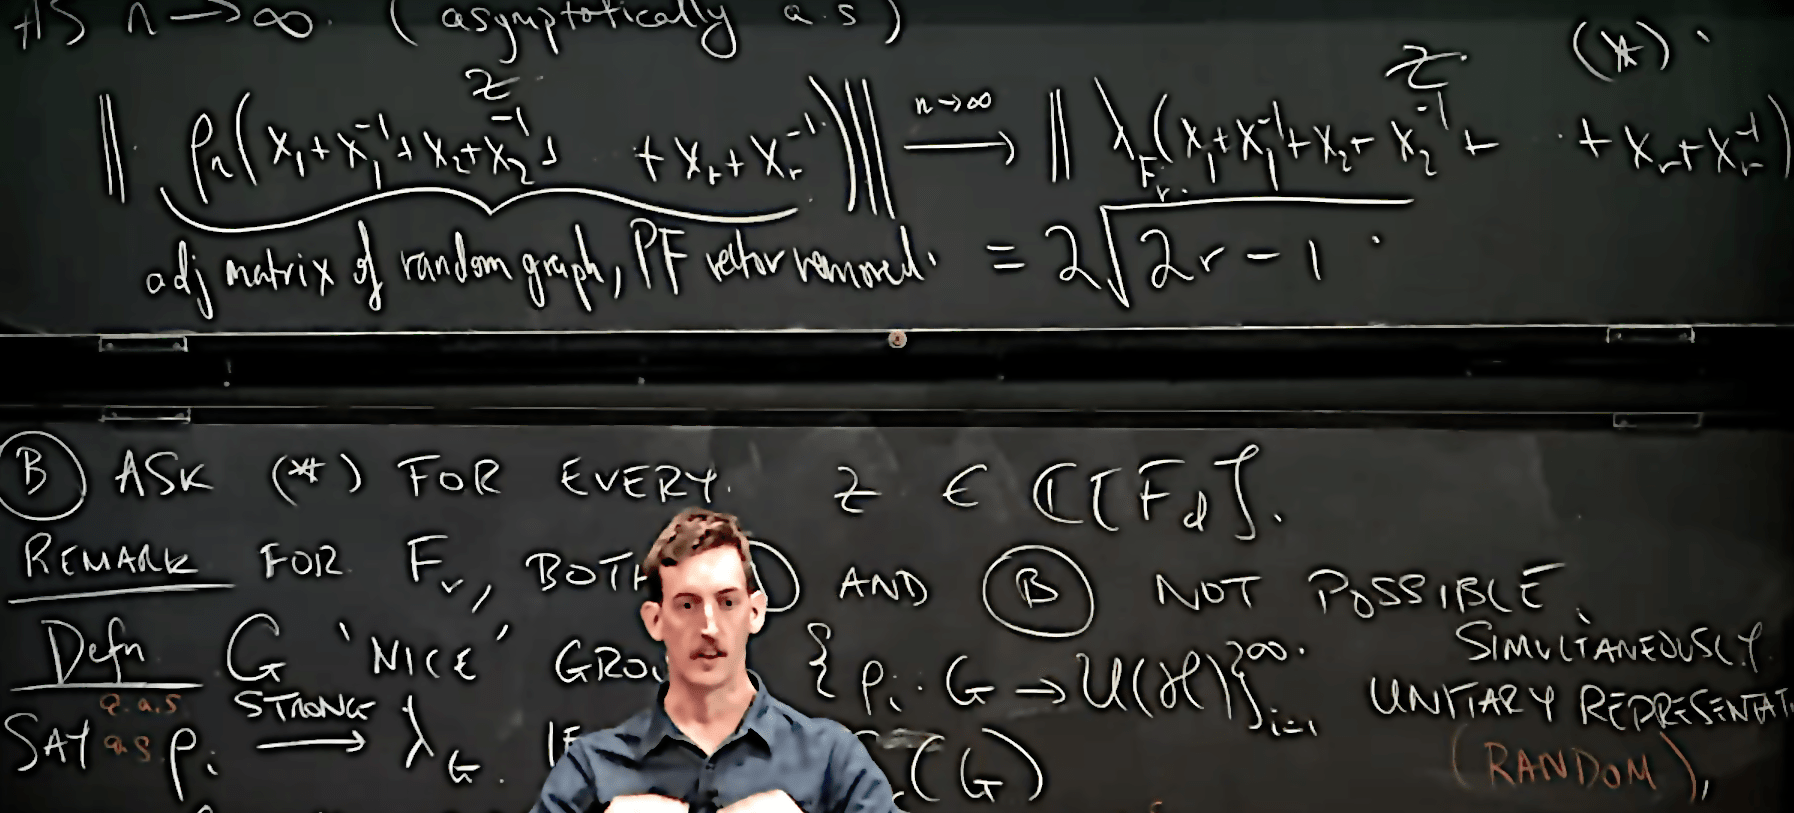 AS n→∞. (asymptotically a.s)
z z (*).
‖ ρₙ(x₁+x₁⁻¹+x₂+x₂⁻¹+ +xᵣ+xᵣ⁻¹)‖ —n→∞→ ‖ λ_Fᵣ.(x₁+x₁⁻¹+x₂+x₂⁻¹+ · +xᵣ+xᵣ⁻¹)
adj matrix of random graph, PF vector removed. = 2√(2r-1) .
Ⓑ ASK (*) FOR EVERY. z ∈ ℂ[F_d].
REMARK FOR Fᵣ, BOTH AND Ⓑ NOT POSSIBLE.
SIMULTANEOUSLY.
Defn G 'NICE' {ρᵢ: G → U(ℋ)}_{i=1}^∞. UNITARY
SAY a.s ρᵢ —STRONG→ λ_G. IF (G) (RANDOM),